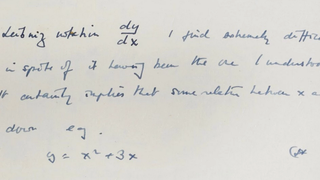 Leibniz notation dy/dx I find extremely
in spite of it having been the one I
It certainly implies that some relation between x
down e.g.
y = x² + 3x